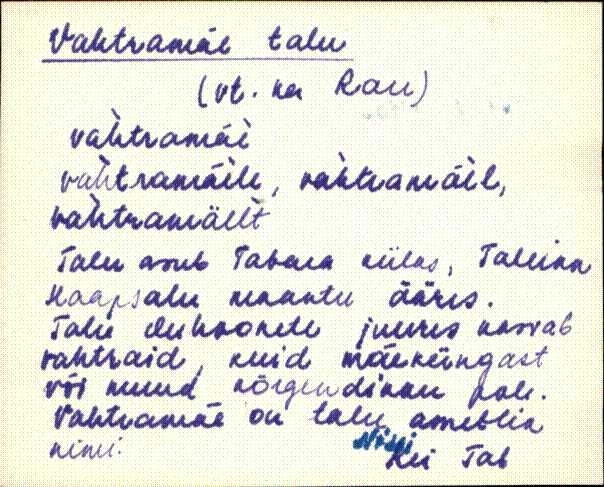 Vahtramäe talu
(vt. ka Rau)
vàhtramäè
vàhtramäèle, vàhtramäèl,
vàhtramäèlt
Talu asub Tabara külas, Tallinn
Haapsalu maantee ääres.
Talu õuehoonete juures kasvab
vahtraid, kuid mäeküngast
või muud kõrgendikku pole.
Vahtramäe on talu ametlik
nimi.
Nissi
Kei Tab